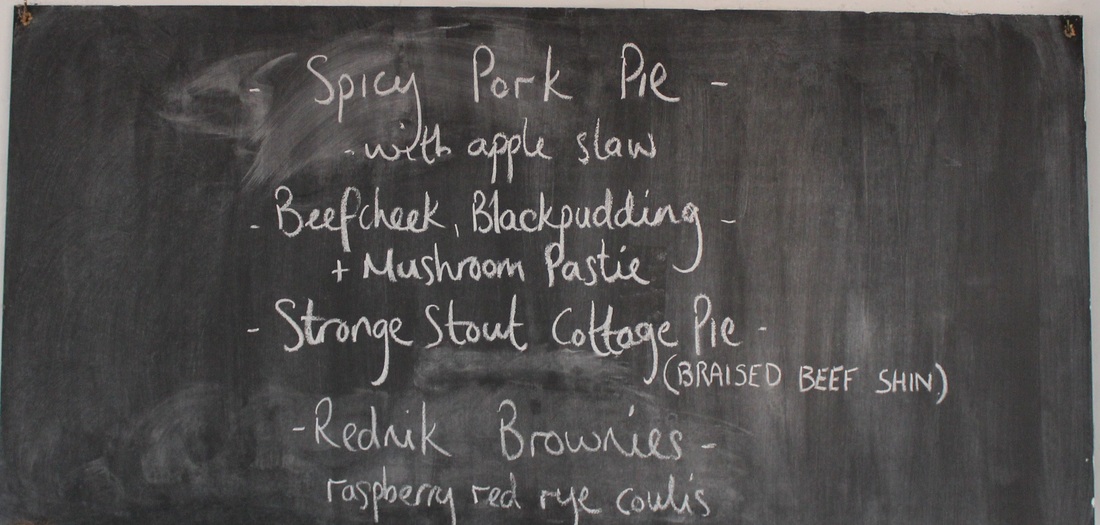 - Spicy Pork Pie -
- with apple slaw
- Beefcheek, Blackpudding -
+ Mushroom Pastie
- Stronge Stout Cottage Pie -
(BRAISED BEEF SHIN)
- Rednik Brownies -
raspberry red rye coulis